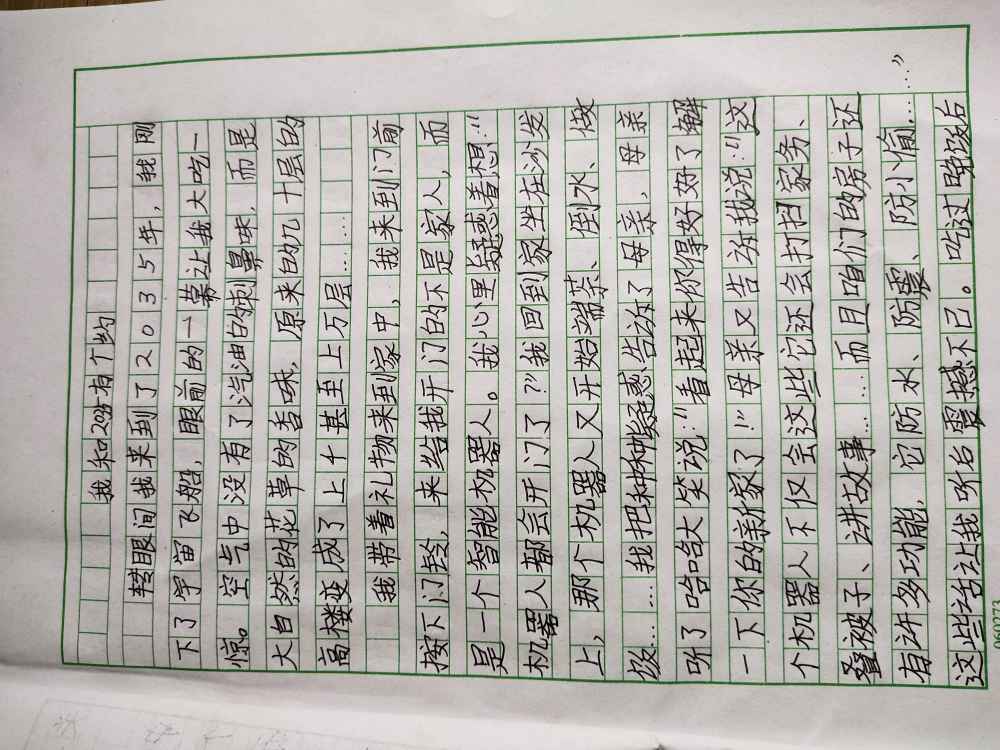 我和2035有个约
转眼间我来到了2035年，我刚
下了宇宙飞船，眼前的一幕让我大吃一
惊。空气中没有了汽油的刺鼻味，而是
大自然的花草的香味，原来的几十层的
高楼变成了上千甚至上万层……
我带着礼物来到家中，我来到门前
按下门铃，来给我开门的不是家人，而
是一个智能机器人。我心里疑惑着想："
机器人都会开门了？"我回到家坐在沙发
上，那个机器人又开始端茶、倒水、做
饭……我把种种疑惑告诉了母亲，母亲
听了哈哈大笑说："看起来你得好好了解
一下你的新家了！"母亲又告诉我说："这
个机器人不仅会这些它还会打扫家务、
叠被子、讲故事……而且咱们的房子还
有许多功能，它防水、防震、防小偷……"
这些话让我听后震撼不已。吃过晚饭后
060273